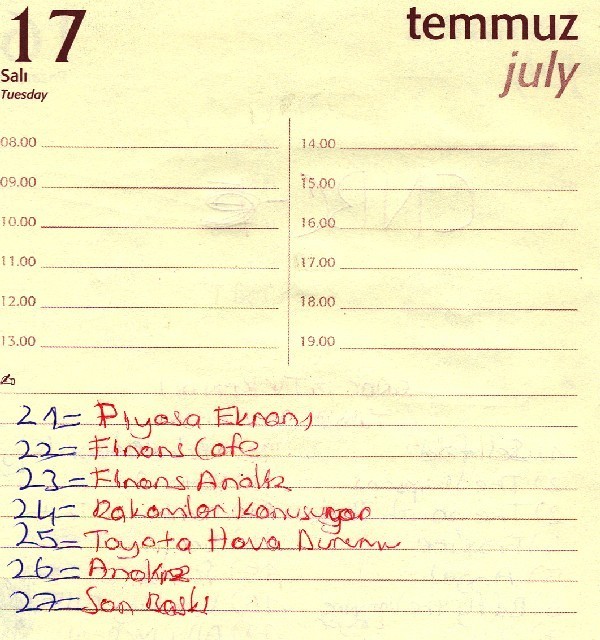 17
Salı
Tuesday
temmuz
july
08.00
09.00
10.00
11.00
12.00
13.00
14.00
15.00
16.00
17.00
18.00
19.00
21= Piyasa Ekranı
22= Finans Cafe
23= Finans Analiz
24= Rakamlar Konuşuyor
25= Toyota Hava Durumu
26= Analiz
27= Son Baskı